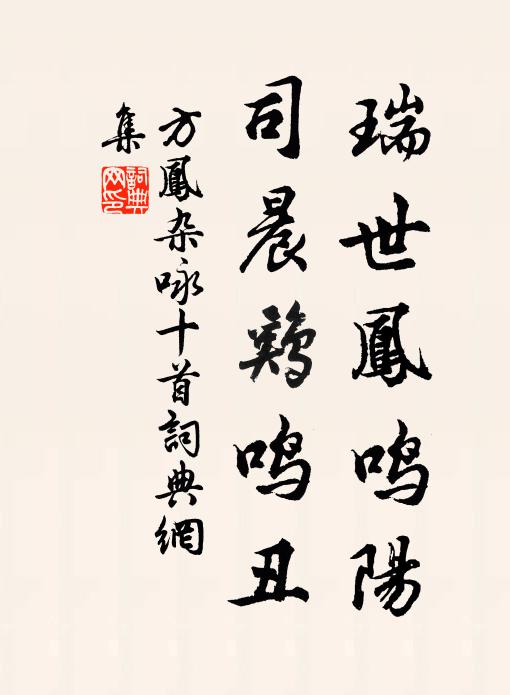 瑞世鳳鳴陽
司晨鷄鳴丑
方鳳杂咏十首詞典網
集
詞典
网印